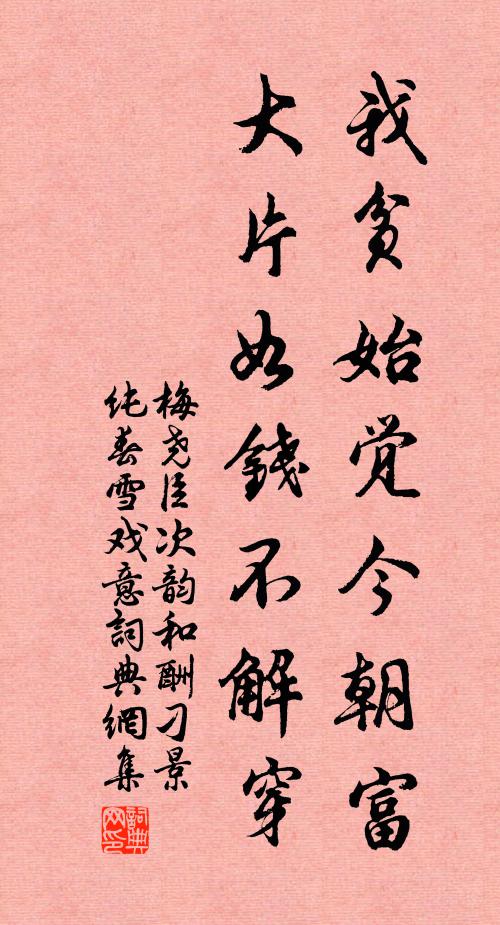 我贫始觉今朝富
大片如錢不解穿
梅尧臣次韵和酬刁景
纯春雪戏意詞典網集
詞典网印